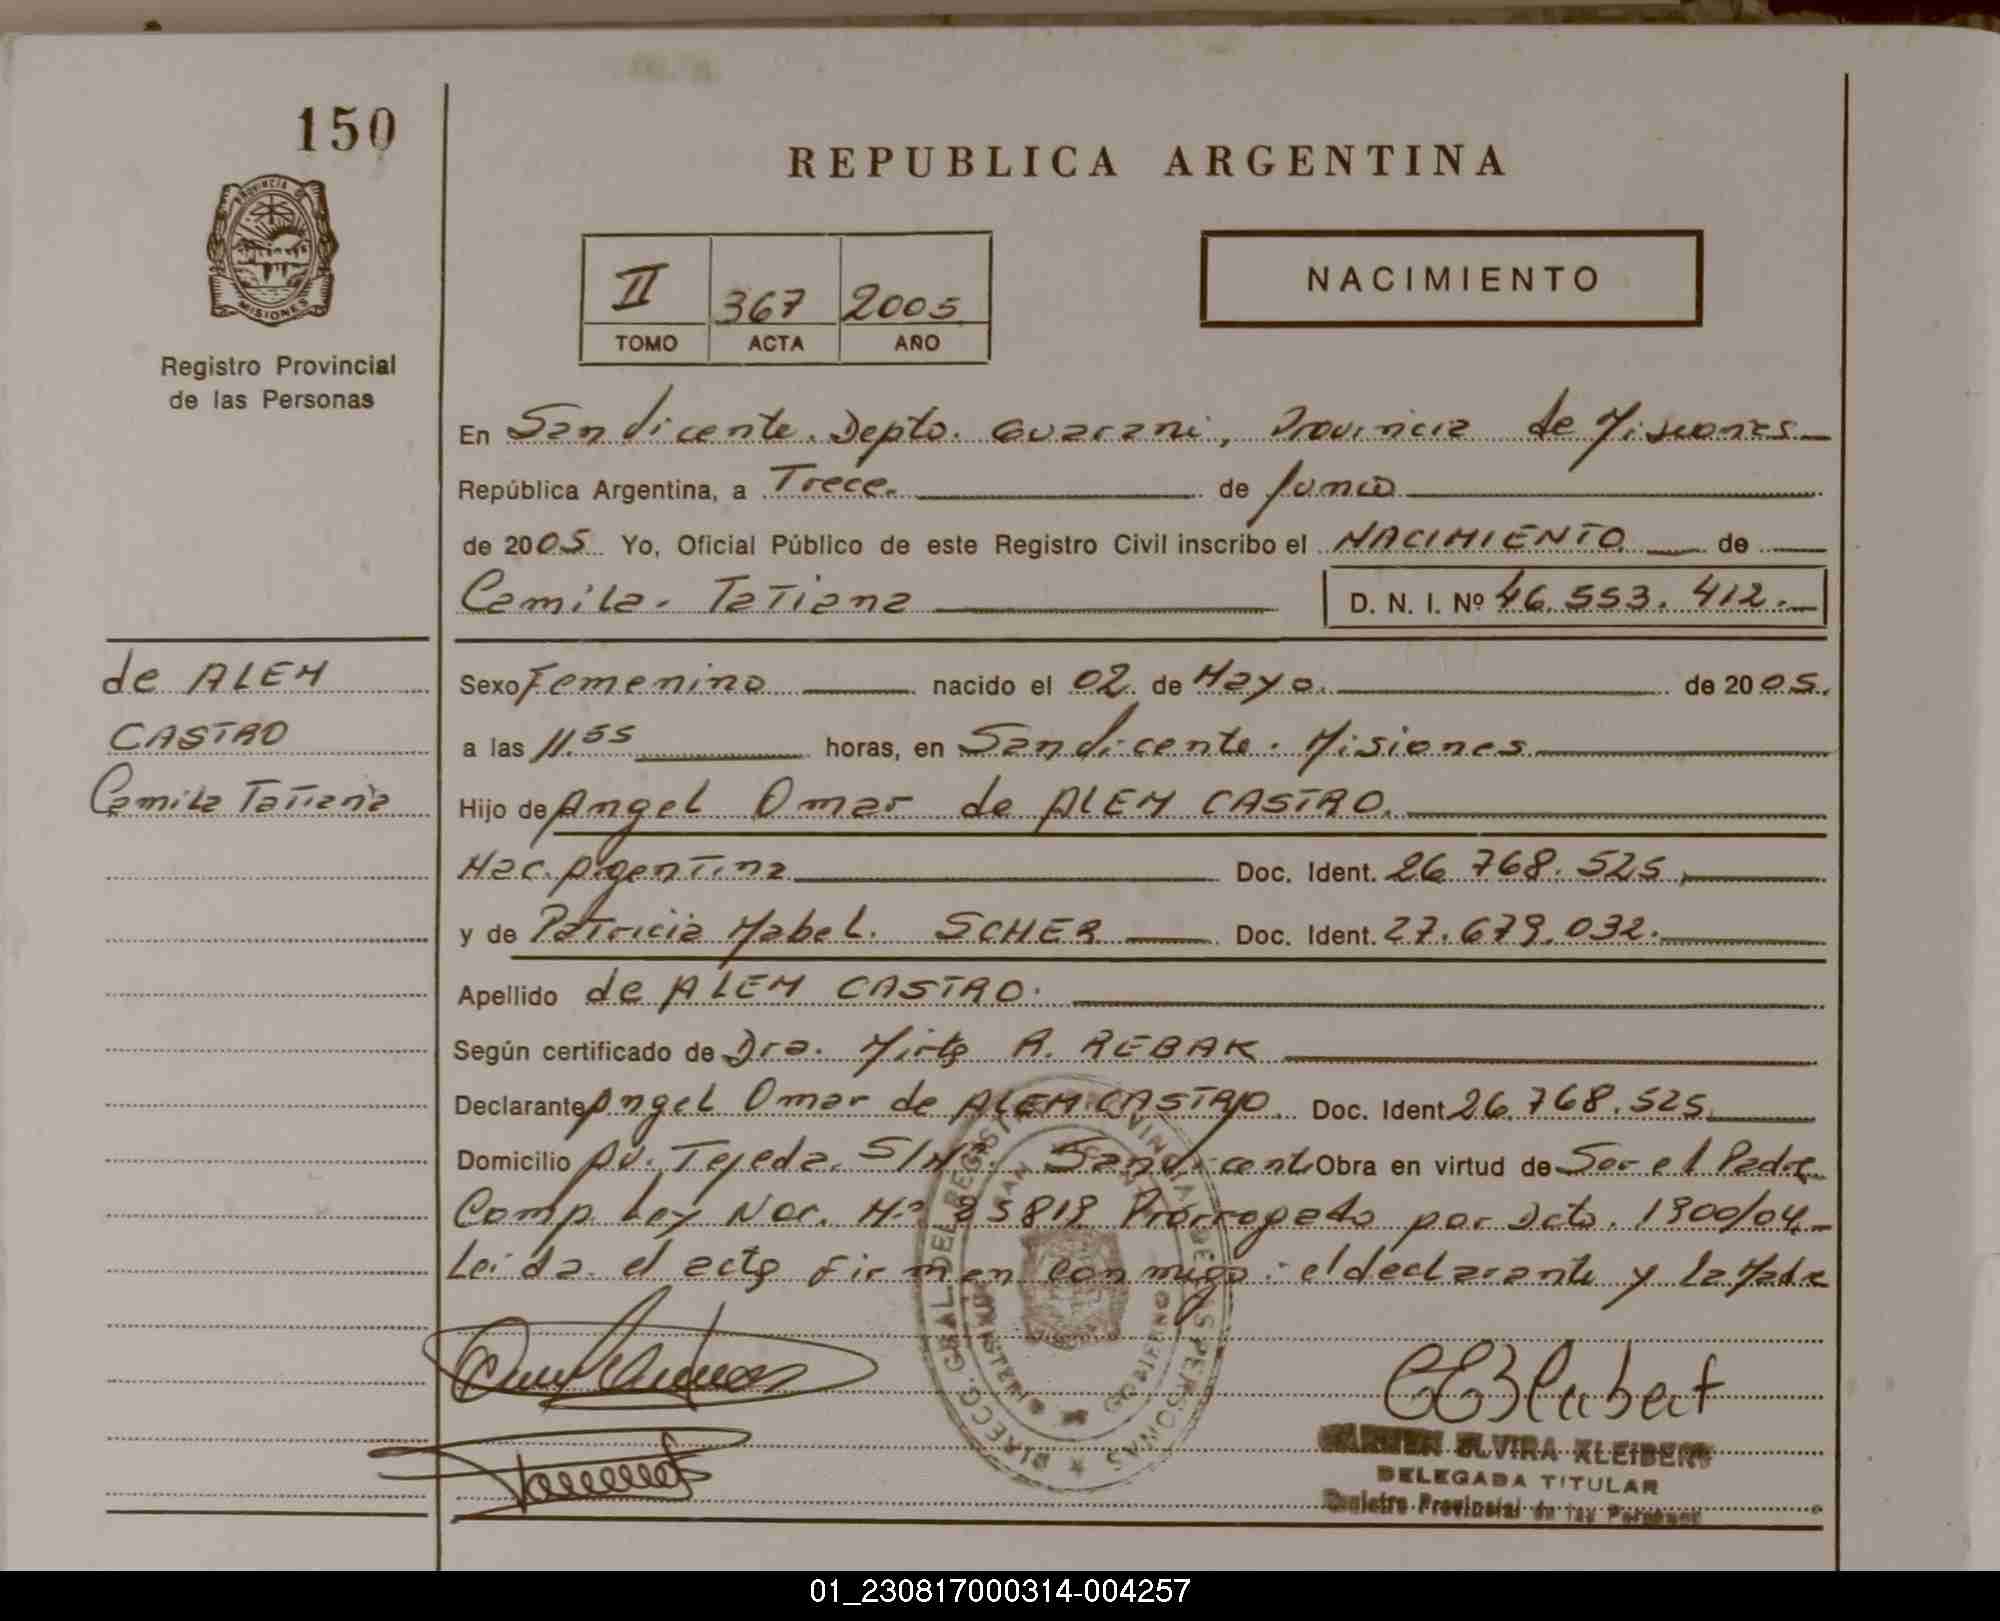 150
PROVINCIA DE
MISIONES
Registro Provincial
de las Personas
REPUBLICA ARGENTINA
II 367 2005
TOMO ACTA AÑO
NACIMIENTO
En San Vicente. Depto. Guarani, Provincia de Misiones
República Argentina, a Trece de Junio
de 2005 Yo, Oficial Público de este Registro Civil inscribo el NACIMIENTO de
Camila Tatiana D. N. I. Nº 46.553.412.
de ALEM
CASTRO
Camila Tatiana
Sexo Femenino nacido el 02 de Mayo de 2005.
a las 11.55 horas, en San Vicente. Misiones
Hijo de Angel Omar de ALEM CASTRO.
Nac. Argentina Doc. Ident. 26.768.525
y de Patricia Mabel. SCHER Doc. Ident. 27.679.032.
Apellido de ALEM CASTRO.
Según certificado de Dra. Mirta R. REBAK
Declarante Angel Omar de ALEM CASTRO. Doc. Ident. 26.768.525
Domicilio Av. Tejeda. S/Nº. San Vicente Obra en virtud de Ser el Padre
Comp. Ley Nac. Nº 25819 Prorrogado por Dcto. 1900/04
Leida el acta firman conmigo: el declarante y la Madre
DIRECC. GRAL. DEL REGISTRO PROVINCIAL DE LAS PERSONAS
GOBIERNO
CARMEN ELVIRA KLEIBERT
DELEGADA TITULAR
Registro Provincial de las Personas
01_230817000314-004257